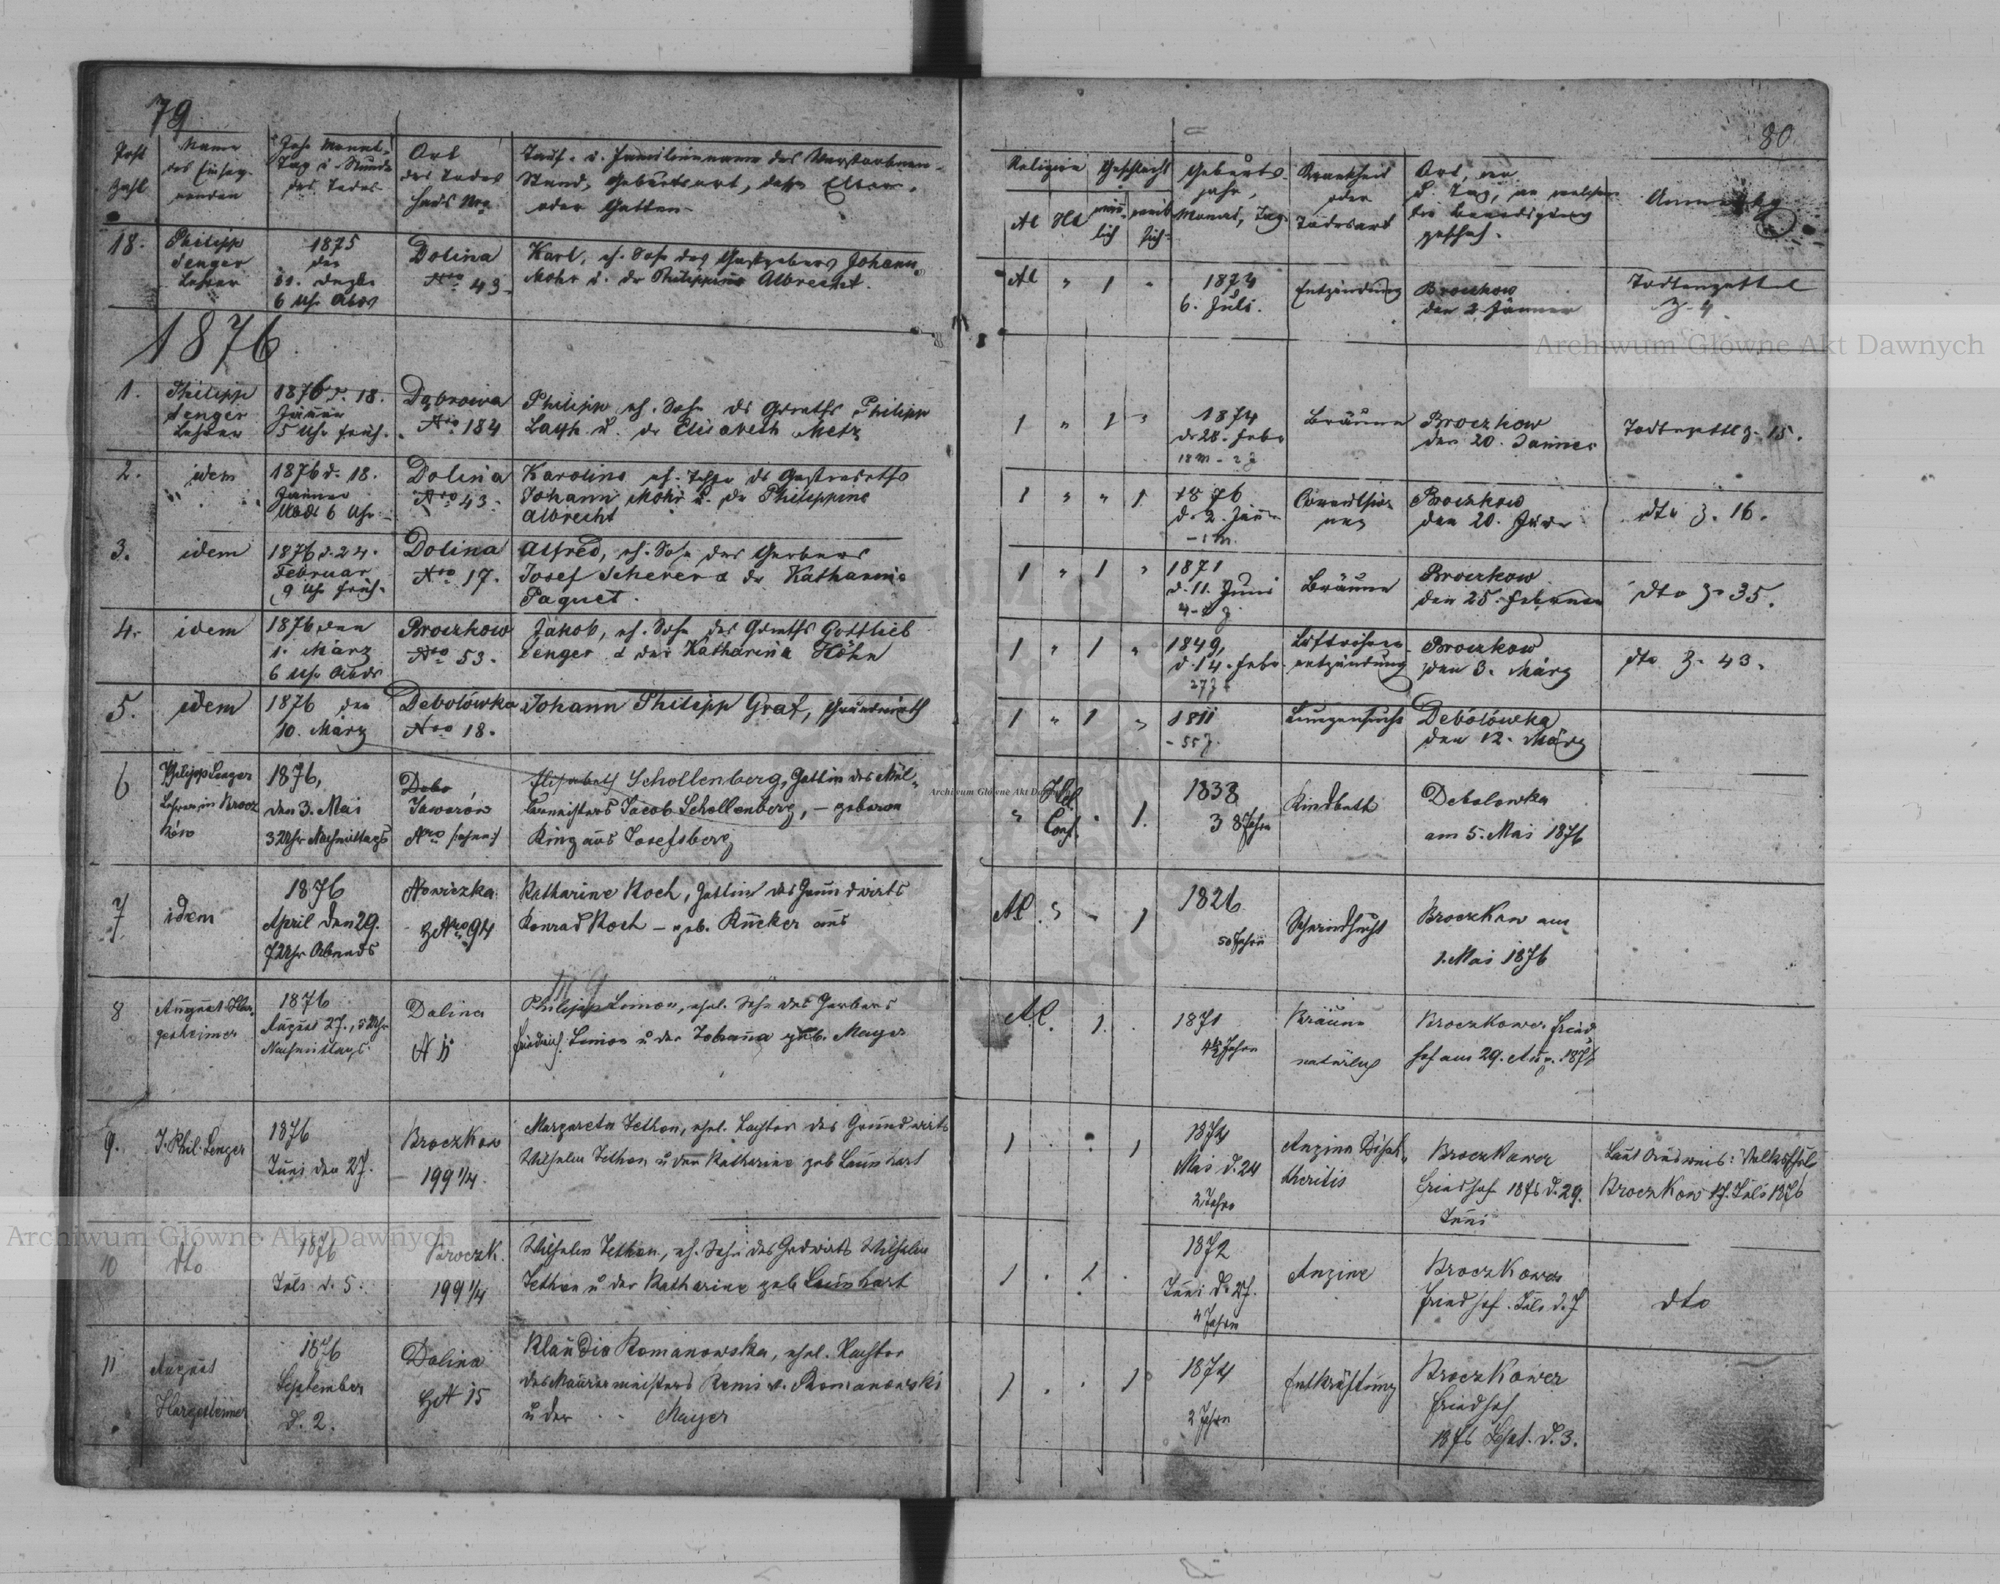 79
Post
Zahl
Name
des Einseg-
nenden
Jahr Monat
Tag u. Stunde
des Todes
Ort
des Todes
Haus Nro
Tauf- u. Familienname des Verstorbenen
Stand, Geburtsort, dessen Eltern
oder Gatten
18.
Philipp
Senger
Lehrer
1875
den
31. Dezbr
6 Uhr Abds
Dolina
Nro 43.
Karl, eh. Sohn des Gastgebers Johann
Mohr u. der Philippine Albrecht.
1876
1.
Philipp
Senger
Lehrer
1876 d. 18.
Jänner
5 Uhr früh.
Dąbrowa
Nro 184
Philipp eh. Sohn des Grdwths Philipp
u. der Elisabeth Metz
2.
idem
1876 d. 18.
Jänner
Abds 6 Uhr
Dolina
Nro 43.
Karoline eh. Tochter des
Johann Mohr u. der Philippine
Albrecht
3.
idem
1876 d. 24.
Februar
9 Uhr früh.
Dolina
Nro 17.
Alfred, eh. Sohn des Gerbers
Josef Scherer & der Katharine
Paquet.
4.
idem
1876 den
1. März
6 Uhr Abds
Broczkow
Nro 53.
Jakob, eh. Sohn des Grdwths Gottlieb
Senger & der Katharina Höhn
5.
idem
1876 den
10. März
Debolówka
Nro 18.
Johann Philipp Graf, Grundwirth
6
Philipp Senger
Lehrer in Brocz
ków
1876,
den 3. Mai
3 Uhr Nachmittags
Debo
Jaworów
Nro
Elisabeth Schollenberg, Gattin des Mül-
lermeisters Jacob Schollenberg, – geborne
Ring aus Josefsberg
7
idem
1876
April den 29.
7 Uhr Abends
Nowiczka
HNro 94
Katharine Koch, Gattin des Grundwirts
Konrad Koch – geb. Rücker aus
8
August Har-
gesheimer
1876
August 27., 5 Uhr
Nachmittags
Dolina
N
Philipp Simon, ehel. Sohn des Gerbers
Friedrich Simon u der Johana geb. Mayer
9.
J. Phil. Senger
1876
Juni den 27.
Broczkow
199 1/4.
Margareta Jethon, ehel. Tochter des Grundwirts
Wilhelm Jethon u der Katharine geb Launhart
10
dto
1876
Juli d. 5.
Broczk.
199 1/4
Wilhelm Jethon, eh. Sohn des Grdwirts Wilhelm
Jethon u der Katharine geb Launhart
11
August
Hargesheimer
1876
September
d. 2.
Dolina
HN 15
Klaudia Romanowska, ehel. Tochter
des Maurermeisters Remi v. Romanowski
u der . . Mayer
80.
Religion
Geschlecht
Geburts-
jahr,
Monat, Tag
Krankheit
oder
Todesart
Ort, wo
& Tag, an welchem
die Beerdigung
geschah.
Al
Hl
männ-
lich
weib-
lich
Al " 1 "
1874
6. Juli.
Entzündung
Broczkow
den 2 Jänner
Todtenzettel
Z. 4.
1 " 1 "
1874
d. 28. Febr
Bräune
Broczkow
den 20. Jänner
Todtenzettl Z. 15.
1 " " 1
1876
d. 2. Jänn
- 1 M.
Convulsio-
nen
Broczkow
den 20. Jänr
dto Z. 16.
1 " 1 "
1871
d. 11. Juni
Bräune
Broczkow
den 25. Februar
dto Z. 35.
1 " 1 "
1849,
d. 14. Febr
27 J
Luftröhren-
entzündung
Broczkow
den 3. März
dto Z. 43.
1 " 1 "
1811
- 55 J.
Lungensucht
Debolówka
den 12. März
" Hel.
Conf. " 1.
1838
38 Jahre
Kindbett
Debolowka
am 5. Mai 1876
Al. " " 1
1826
50 Jahre
Schwindsucht
Broczkow am
1. Mai 1876
Al. 1.
1871
4 1/2 Jahre
Bräune
natürlich
Broczkower Fried
hof am 29. Aug. 1876
1 . . 1
1874
Mai d. 24
2 Jahre
Angina Diph-
theritis
Broczkower
Friedhof 1876 d. 29.
Juni
Laut Ausweis: Volksschule
Broczkow 17. Juli 1876
1 . 1 .
1872
Juni d. 27.
4 Jahre
Angine
Broczkower
Friedhof. Juli d. 7
dto
1 . . 1
1874
2 Jahre
Entkräftung
Broczkower
Friedhof
1876 Sept. d. 3.
Archiwum Główne Akt Dawnych
Archiwum Główne Akt Dawnych
Archiwum Główne Akt Dawnych